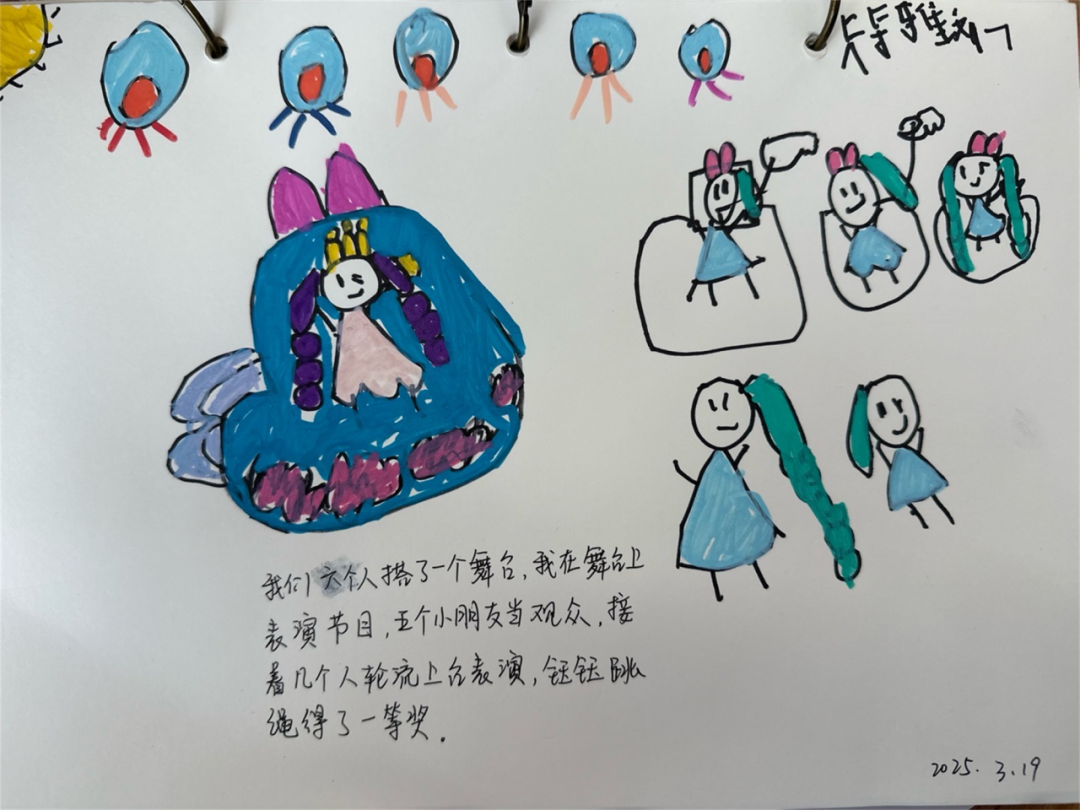 我们六个人搭了一个舞台，我在舞台上
表演节目，五个小朋友当观众，接
着几个人轮流上台表演，钰钰跳
绳得了一等奖．
2025．3．19